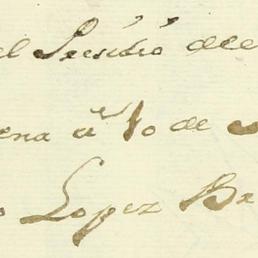 el Presidio de
ena á 10 de
o Lopez Ba